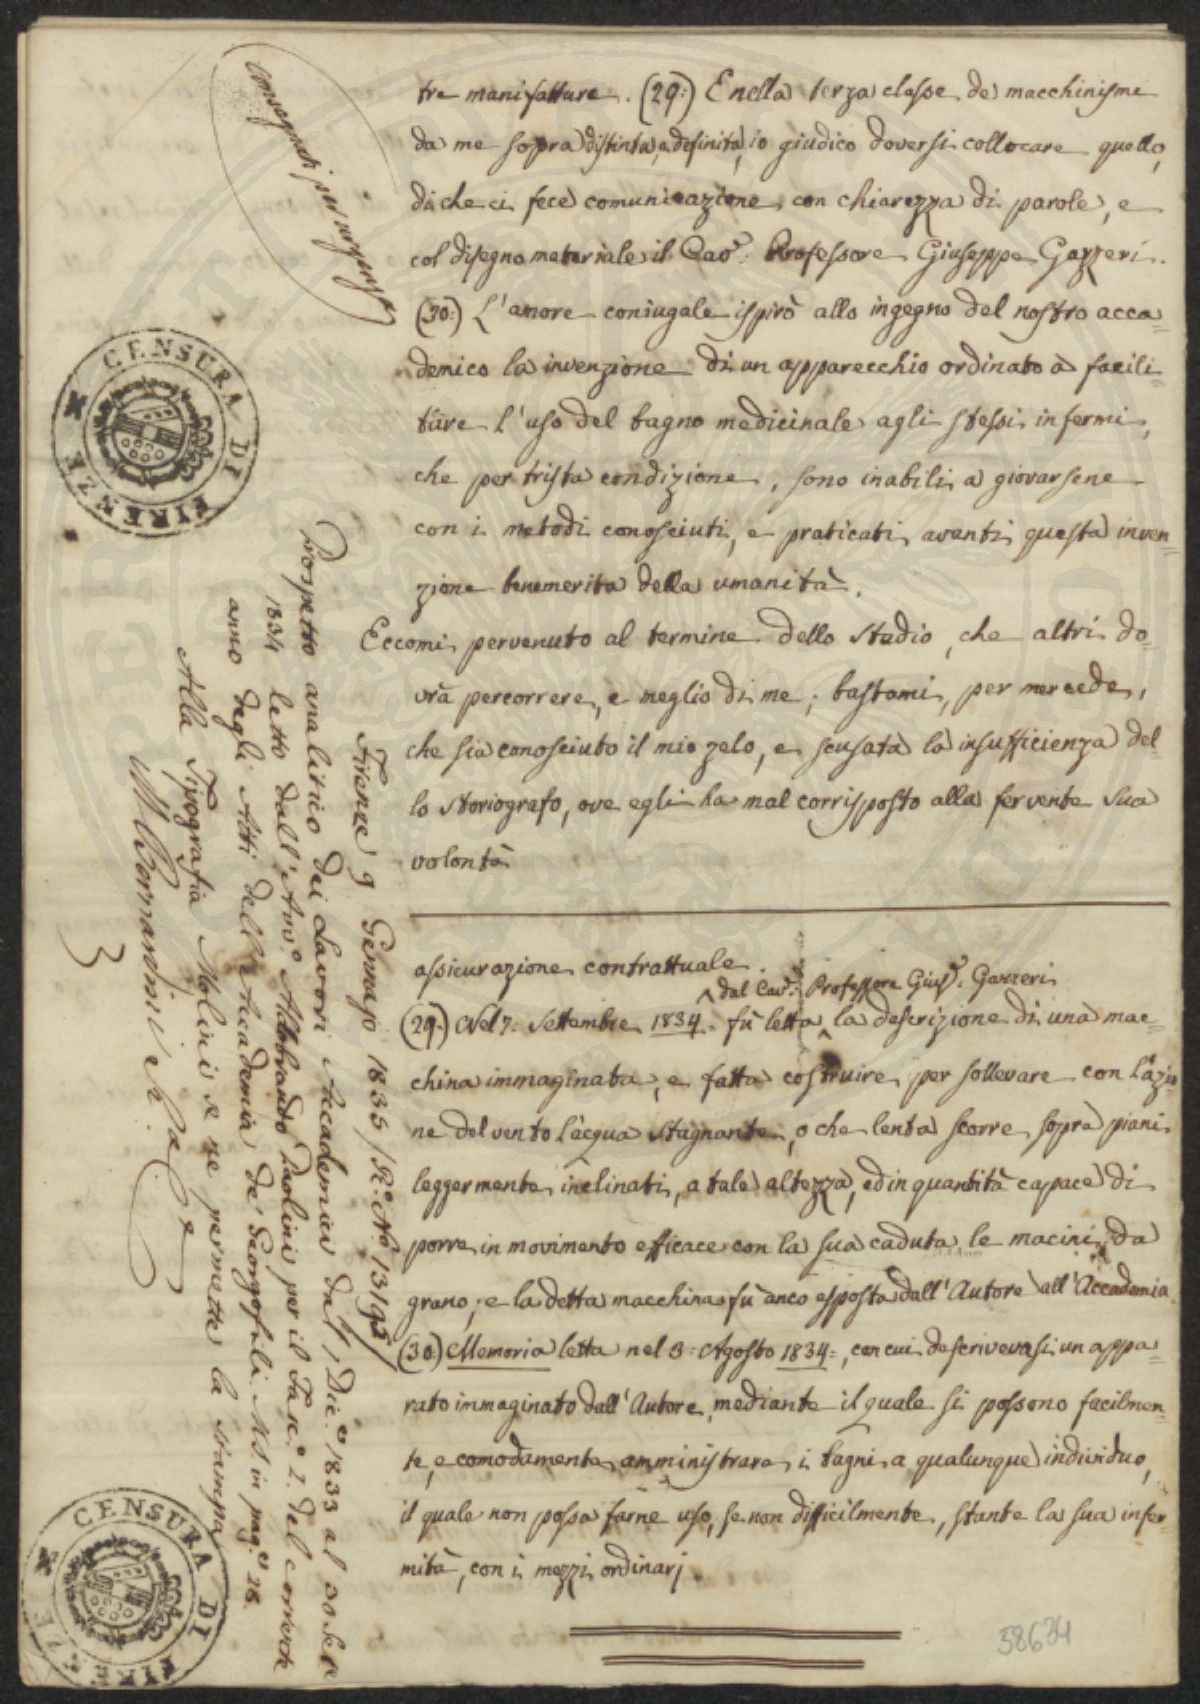 tre manifatture. (29:) E nella terza classe de macchinismi
da me sopra distinta, e definita, io giudico doversi collocare quello,
di che ci fece comunicazione, con chiarezza di parole, e
col disegno materiale il Cav.ᵉ Professore Giuseppe Gazzeri.
(30:) L'amore coniugale ispirò allo ingegno del nostro acca=
demico la invenzione di un apparecchio ordinato a facili=
tare l'uso del bagno medicinale agli stessi infermi,
che per trista condizione, sono inabili a giovarsene
con i metodi conosciuti, e praticati avanti questa inven=
zione benemerita della umanità.
Eccomi pervenuto al termine dello stadio, che altri do=
vrà percorrere, e meglio di me; bastami, per mercede,
che sia conosciuto il mio zelo, e scusata la insufficienza del=
lo storiografo, ove egli ha mal corrisposto alla fervente sua
volontà
assicurazione contrattuale.
dal Cav.ᵉ Professore Gius.ᵉ Gazzeri
(29.) Nel 7: Settembre 1834. fù letta la descrizione di una mac=
china immaginata, e fatta costruire per sollevare con l'azio
ne del vento l'acqua stagnante, o che lenta scorre sopra piani
leggermente inclinati, a tale altezza, ed in quantità capace di
porre in movimento efficace con la sua caduta le macini da
grano; e la detta macchina fù anco esposta dall'Autore all'Accademia.
(30:) Memoria letta nel 3: Agosto 1834=, con cui descrivevasi un appa=
rato immaginato dall'Autore, mediante il quale si possono facilmen=
te, e comodamente amministrare i bagni a qualunque individuo,
il quale non possa farne uso, se non difficilmente, stante la sua infer=
mità, con i mezzi ordinarj.
58634
Firenze 9 Gennajo 1835 / R.° N.° 13192
Prospetto analitico dei Lavori Accademici dal Dic.ᵉ 1833 al 30 Sett.ᵉ
1834 letto dall'Avv.° Aldobrando Paolini per il Fasc.° I. del corrente
anno degli Atti dell'Accademia de' Georgofili. MS in pag.ᵉ 28.
Alla Tipografia Molini se ne permette la stampa
3
CENSURA DI FIRENZE
CENSURA DI FIRENZE